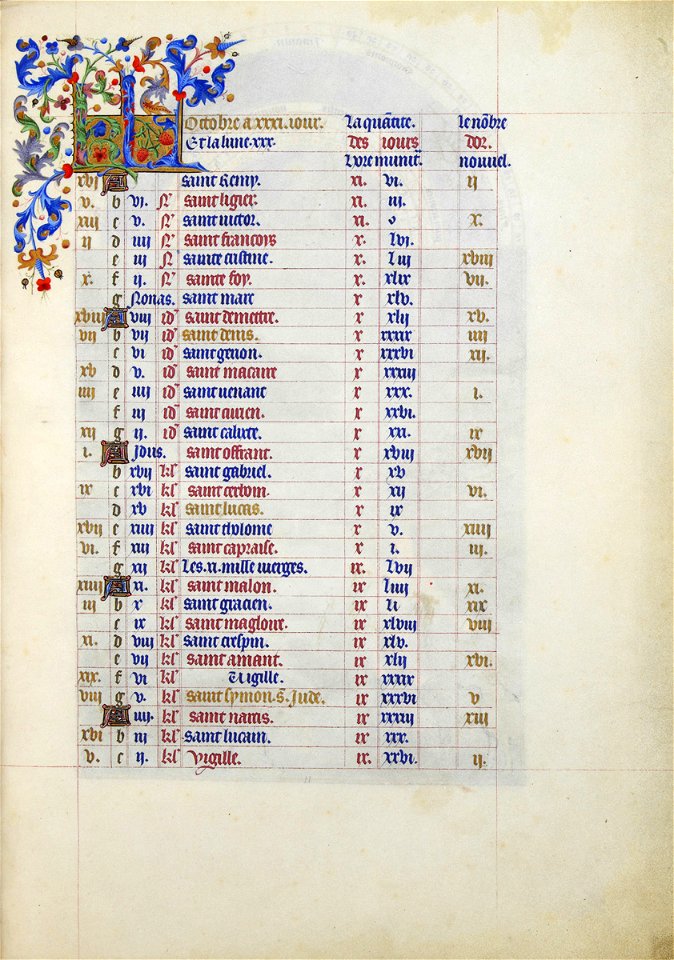 Octobre a xxxi. iour. La quātite. le nōbre
Et la lune .xxx. des iours dor.
nouuel.
xvj A saint Remy. xi. vi. ij
v. b vj. N̄ saint ligier. xi. iij.
xiij c v. N̄ saint uictor. xi. o x.
ij d iiij N̄ saint francoys x. lvi.
e iij N̄ x. liij xviij
x. f ij. N̄ sainte foy. x. xlix vij.
g Nonas. saint marc x xlv.
xviij A viij id' saint demettre. x xlij xv.
vij b vij id' saint denis. x xxxix iiij
c vi id' saint gerion. x xxxvi xij.
xv d v. id' saint macaire x xxxiij
iiij e iiij id' saint uenant x xxx. i.
f iij id' saint x xxvi.
xij g ij. id' saint calixte. x xxi. ix
i. A Idus. saint offrant. x xviij xvij
b xvij kl' saint gabriel. x xv
ix c xvi kl' saint x xij vi.
d xv kl' saint lucas. x ix
xvij e xiiij kl' saint x v. xiiij
vi. f xiij kl' saint capraise. x i. iij.
g xij kl' Les .xi. mille vierges. ix. lvij
xiiij A xi. kl' saint malon. ix liiij xi.
iij b x kl' saint gracien. ix li xix
c ix kl' saint magloire ix xlviij viij
xi. d viij kl' saint crespin. ix xlv.
e vij kl' saint amant. ix xlij xvi.
xix. f vi kl' Uigille. ix xxxix
viij g v. kl' saint symon. S. Jude. ix xxxvi v
A iiij. kl' saint narcis. ix xxxiij xiij
xvi b iij kl' saint lucain. ix xxx.
v. c ij. kl' vigille. ix. xxvi. ij.